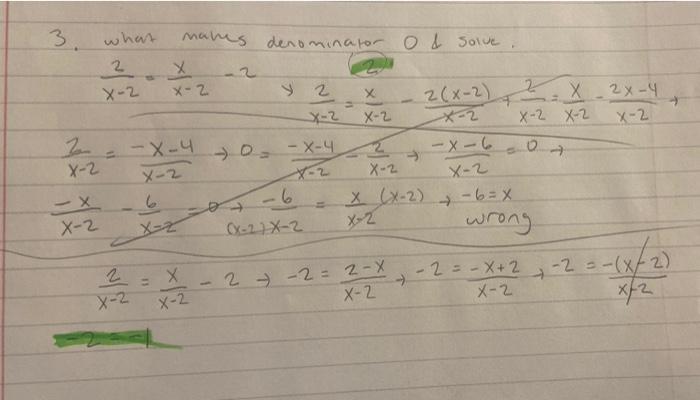 3. what makes denominator 0 & solve.
2/x-2 = x/x-2 - 2 (2)
→ 2/x-2 = x/x-2 - 2(x-2)/x-2 → 2/x-2 = x/x-2 - 2x-4/x-2 →
2/x-2 = -x-4/x-2 → 0 = -x-4/x-2 - 2/x-2 → -x-6/x-2 = 0 →
-x/x-2 - 6/x-2 = 0 → -6/(x-2)x-2 = x/x-2 (x-2) → -6=x
wrong
2/x-2 = x/x-2 - 2 → -2 = 2-x/x-2 → -2 = -x+2/x-2 → -2 = -(x-2)/x-2
-2 = -1